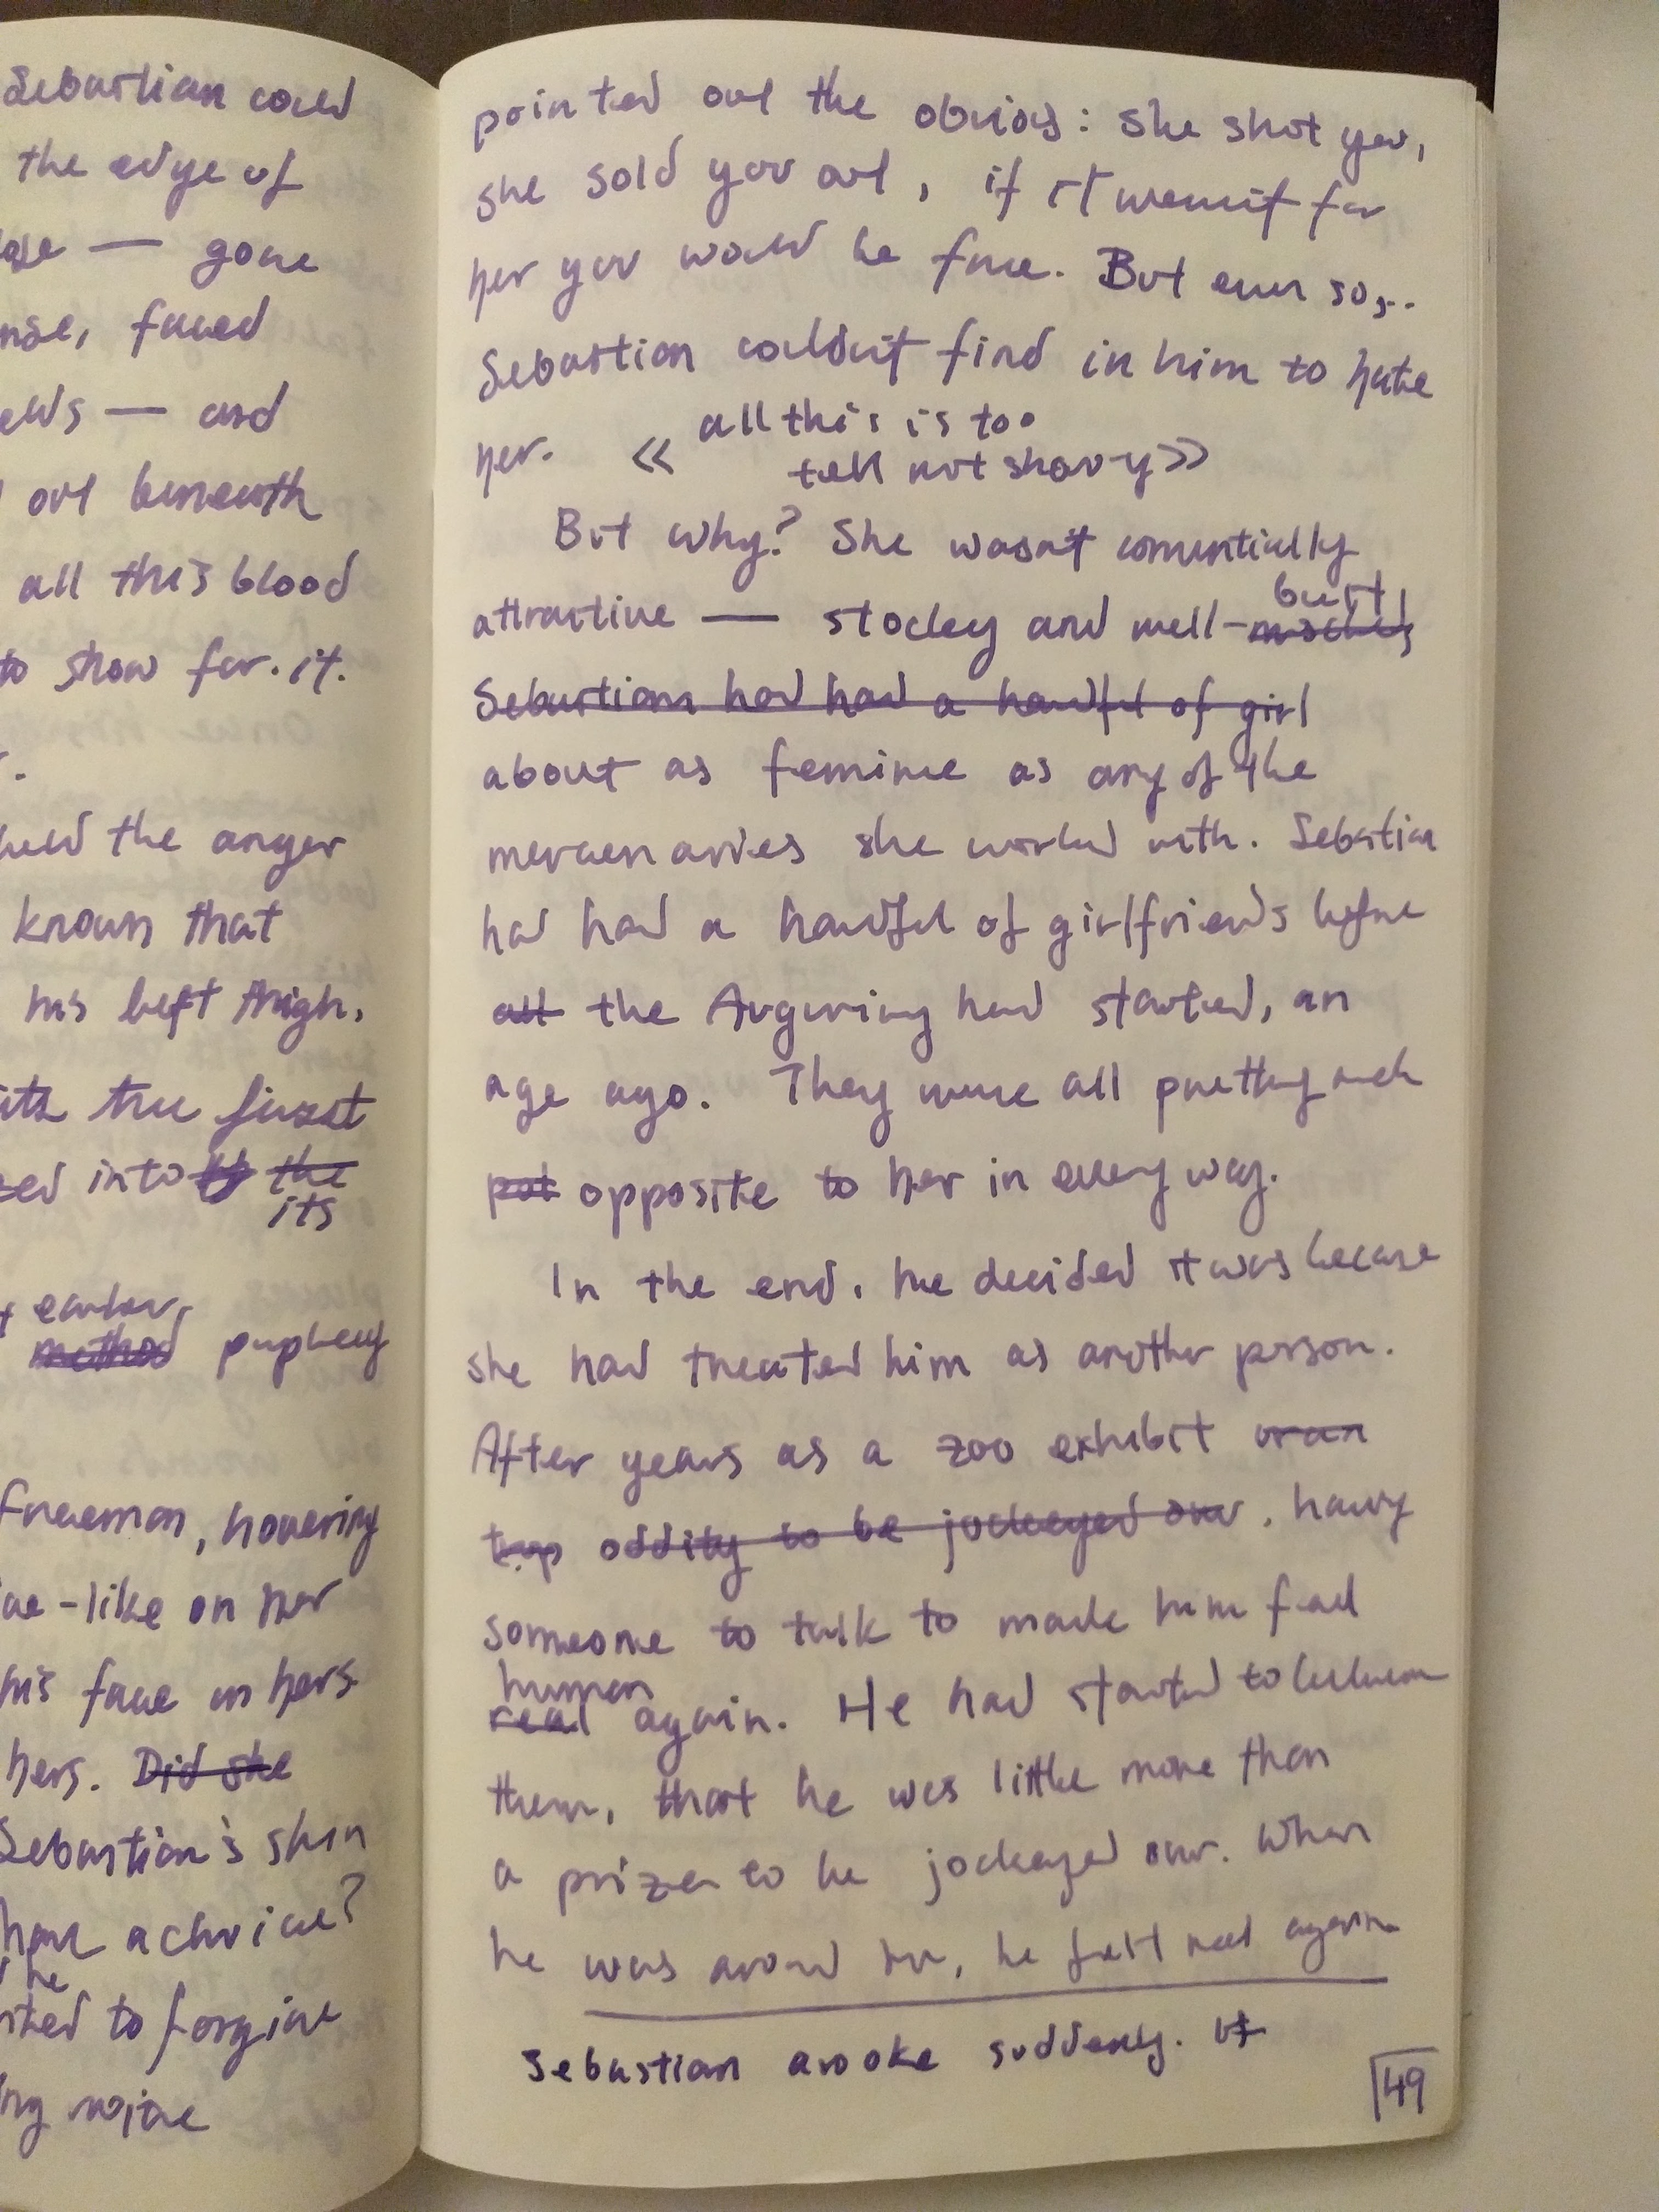 Sebastian could
the edge of
— gone
nse, faced
— and
out beneath
all this blood
to show for it.
the anger
known that
his left thigh.
the first
into the
its
earlier,
method prophecy
Freeman, hovering
-like on her
his face in hers
hers. Did she
Sebastian's skin
have a choice?
he
to forgive
pointed out the obvious: she shot you,
she sold you out, if it weren't for
her you would be free. But even so...
Sebastian couldn't find in him to hate
her. << all this is too
tell not showy >>
But why? She wasn't conventially
attractive — stocky and well-built,
Sebastian had had a handful of girl
about as feminine as any of the
mercenaries she worked with. Sebastian
had had a handful of girlfriends before
all the Auguring had started, an
age ago. They were all pretty much
pot opposite to her in every way.
In the end, he decided it was because
she had treated him as another person.
After years as a zoo exhibit or an
oddity to be jockeyed over, having
someone to talk to made him feel
human
real again. He had started to believe
them, that he was little more than
a prize to be jockeyed over. When
he was around her, he felt real again
Sebastian awoke suddenly. It
49